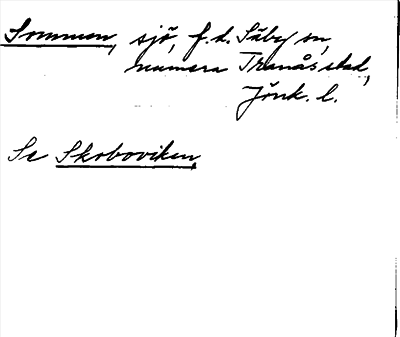 Sommen, sjö, f.d. Säby sn,
numera Tranås stad,
Jönk. l.
Se Skoboviken,